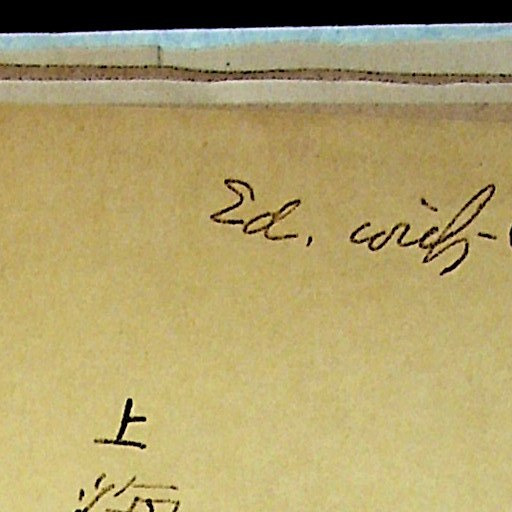 Ed. with
上